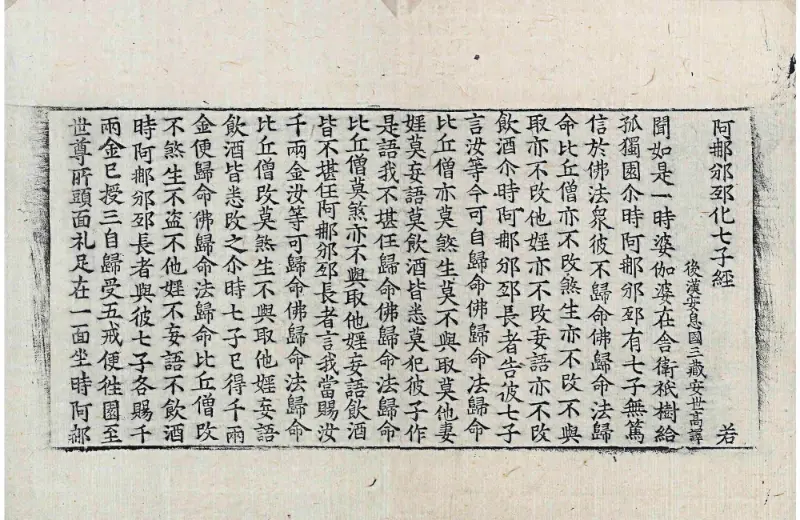 阿邮邠邳化七子經　若
後漢安息國三藏安世高譯
聞如是一時婆伽婆在舍衛祇樹給
孤獨園尒時阿邮邠邳有七子無篤
信於佛法衆彼不歸命佛歸命法歸
命比丘僧亦不改煞生亦不改不與
取亦不改他婬亦不改妄語亦不改
飲酒尒時阿邮邠邳長者告彼七子
言汝等今可自歸命佛歸命法歸命
比丘僧亦莫煞生莫不與取莫他妻
婬莫妄語莫飲酒皆悉莫犯彼子作
是語我不堪任歸命佛歸命法歸命
比丘僧莫煞亦不與取他婬妄語飲酒
皆不堪任阿邮邠邳長者言我當賜汝
千兩金汝等可歸命佛歸命法歸命
比丘僧改莫煞生不與取他婬妄語
飲酒皆悉改之尒時七子已得千兩
金便歸命佛歸命法歸命比丘僧改
不煞生不盗不他婬不妄語不飲酒
時阿邮邠邳長者與彼七子各賜千
兩金已授三自歸受五戒便徃園至
世尊所頭面礼足在一面坐時阿邮